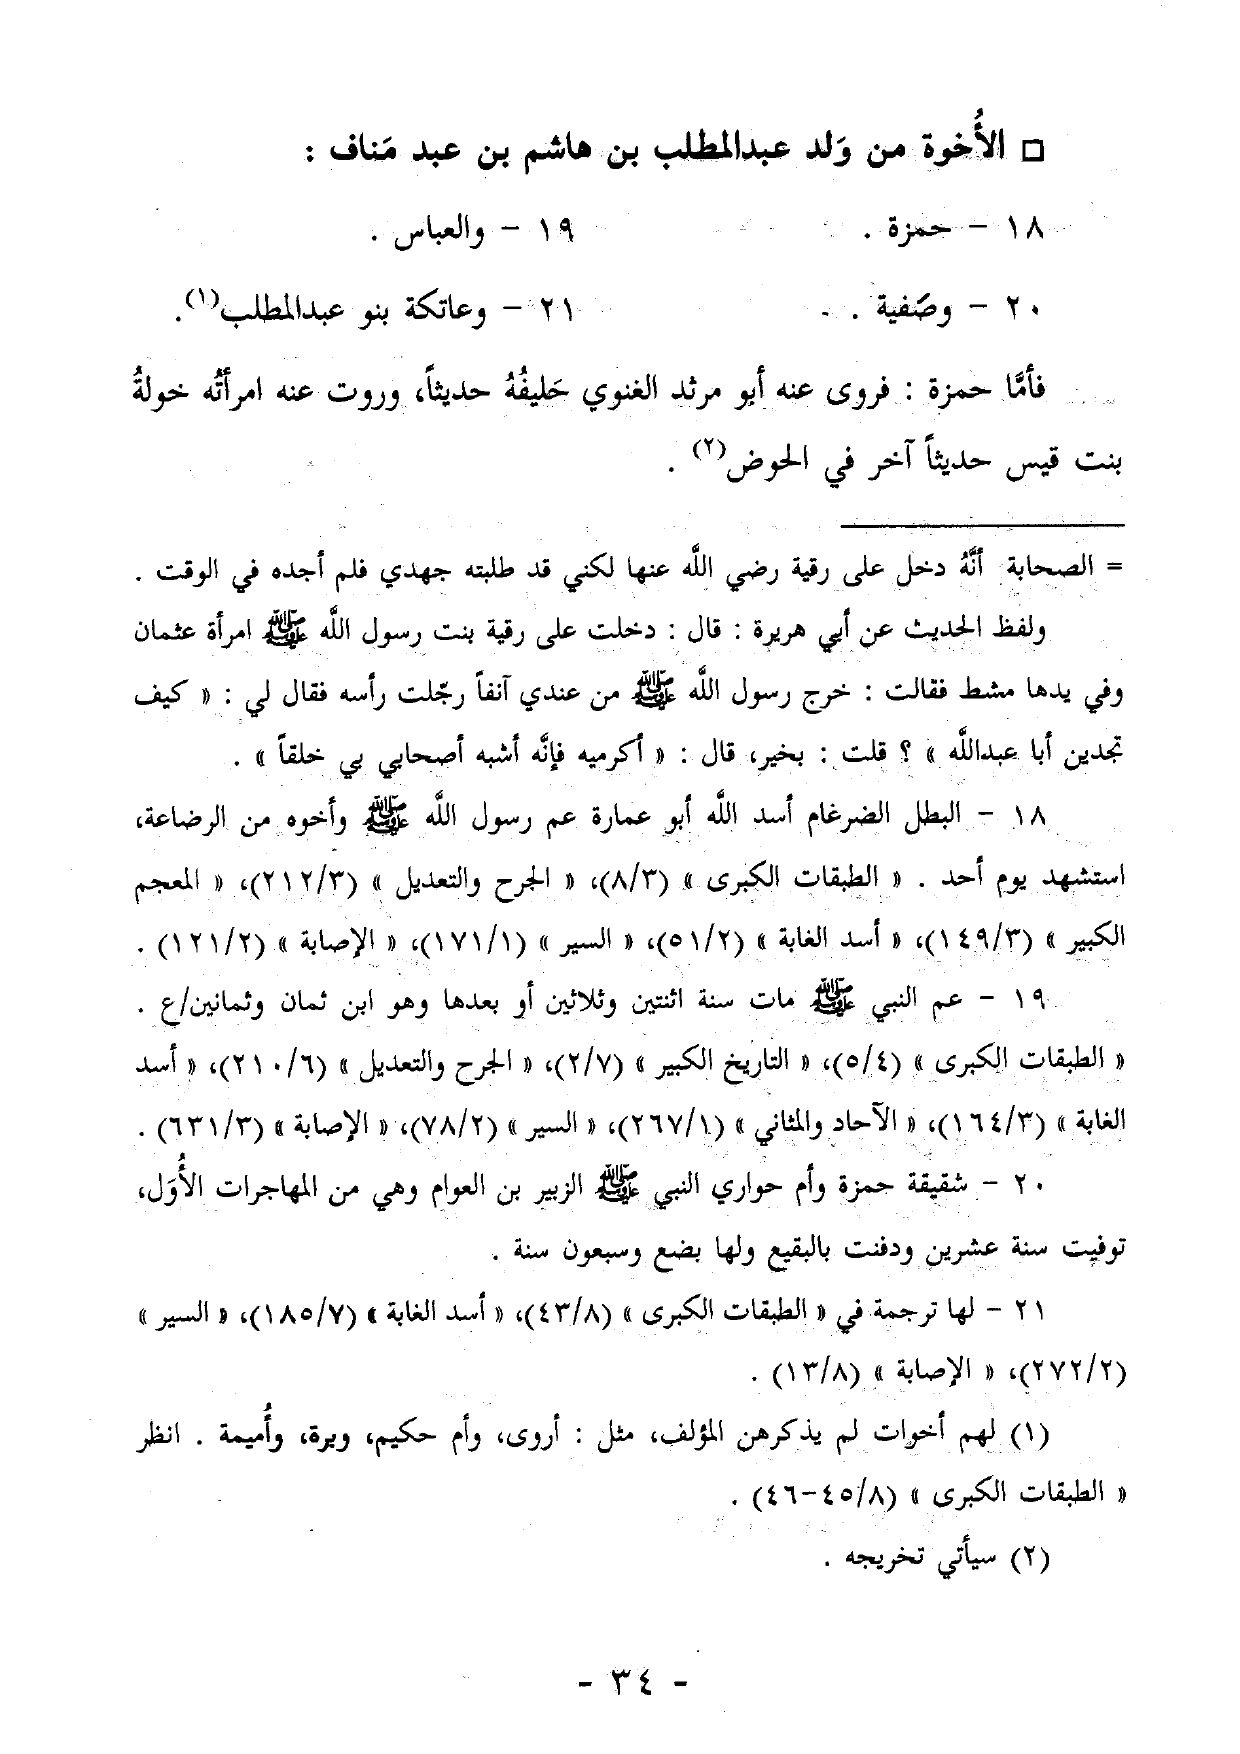 □ الأُخوة من وَلد عبدالمطلب بن هاشم بن عبد مَناف :
١٨ - حمزة . ١٩ - والعباس .
٢٠ - وصَفية . ٢١ - وعاتكة بنو عبدالمطلب(١).
فأمَّا حمزة : فروى عنه أبو مرثد الغنوي حَليفُهُ حديثاً، وروت عنه امرأتُه خولةُ
بنت قيس حديثاً آخر في الحوض(٢) .
= الصحابة أنَّهُ دخل على رقية رضي اللَّه عنها لكني قد طلبته جهدي فلم أجده في الوقت .
ولفظ الحديث عن أبي هريرة : قال : دخلت على رقية بنت رسول اللَّه ﷺ امرأة عثمان
وفي يدها مشط فقالت : خرج رسول اللَّه ﷺ من عندي آنفاً رجّلت رأسه فقال لي : « كيف
تجدين أبا عبداللَّه » ؟ قلت : بخير، قال : « أكرميه فإنَّه أشبه أصحابي بي خلقاً » .
١٨ - البطل الضرغام أسد اللَّه أبو عمارة عم رسول اللَّه ﷺ وأخوه من الرضاعة،
استشهد يوم أحد . « الطبقات الكبرى » (٨/٣)، « الجرح والتعديل » (٢١٢/٣)، « المعجم
الكبير » (١٤٩/٣)، « أسد الغابة » (٥١/٢)، « السير » (١٧١/١)، « الإصابة » (١٢١/٢) .
١٩ - عم النبي ﷺ مات سنة اثنتين وثلاثين أو بعدها وهو ابن ثمان وثمانين/ع .
« الطبقات الكبرى » (٥/٤)، « التاريخ الكبير » (٢/٧)، « الجرح والتعديل » (٢١٠/٦)، « أسد
الغابة » (١٦٤/٣)، « الآحاد والمثاني » (٢٦٧/١)، « السير » (٧٨/٢)، « الإصابة » (٦٣١/٣) .
٢٠ - شقيقة حمزة وأم حواري النبي ﷺ الزبير بن العوام وهي من المهاجرات الأُوَل،
توفيت سنة عشرين ودفنت بالبقيع ولها بضع وسبعون سنة .
٢١ - لها ترجمة في « الطبقات الكبرى » (٤٣/٨)، « أسد الغابة » (١٨٥/٧)، « السير »
(٢٧٢/٢)، « الإصابة » (١٣/٨) .
(١) لهم أخوات لم يذكرهن المؤلف، مثل : أروى، وأم حكيم، وبرة، وأُميمة . انظر
« الطبقات الكبرى » (٤٥/٨-٤٦) .
(٢) سيأتي تخريجه .
- ٣٤ -